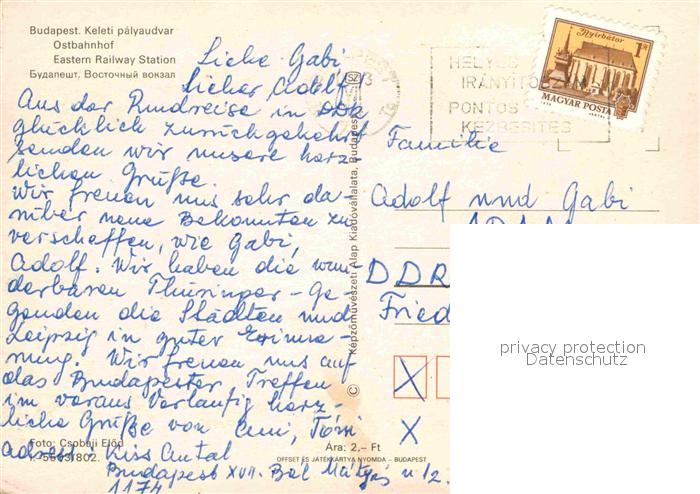 Budapest. Keleti pályaudvar
Ostbahnhof
Eastern Railway Station
Будапешт. Восточный вокзал
Liebe Gabi
lieber Adolf
Aus der Rundreise in DDR
glücklich zurückgekehrt
senden wir unsere herz-
lichen Grüße.
Wir freuen uns sehr da-
rüber neue Bekannten zu
verschaffen, wie Gabi,
Adolf. Wir haben die wun-
derbaren Thüringer-Ge-
genden die Städten und
Leipzig in guter Erinne-
rung. Wir freuen uns auf
das Budapester Treffen
im voraus Vorläufig herz-
liche Grüße von
Foto: Csobaji Előd
Adress: Kiss Antal
Budapest XVII. Bál Mátyás u
1174
HELYES
IRÁNYÍTÓ
PONTOS
KÉZBESÍTÉS
Nyírbátor
1 Ft
MAGYAR POSTA
Familie
Adolf und Gabi
DDR
Fried
© Képzőművészeti Alap Kiadóvállalata, Budapest
Ára: 2,– Ft
OFFSET ÉS JÁTÉKKÁRTYA NYOMDA – BUDAPEST
privacy protection
Datenschutz